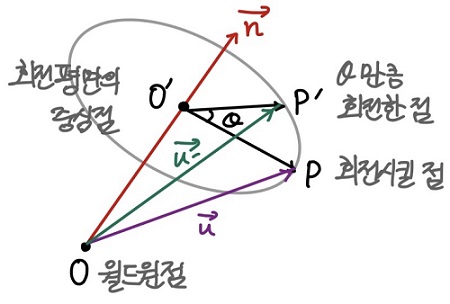 n
회전평면의
중심점
O'
P'
θ만큼
회전한 점
θ
u'
P 회전시킬 점
u
O 월드원점